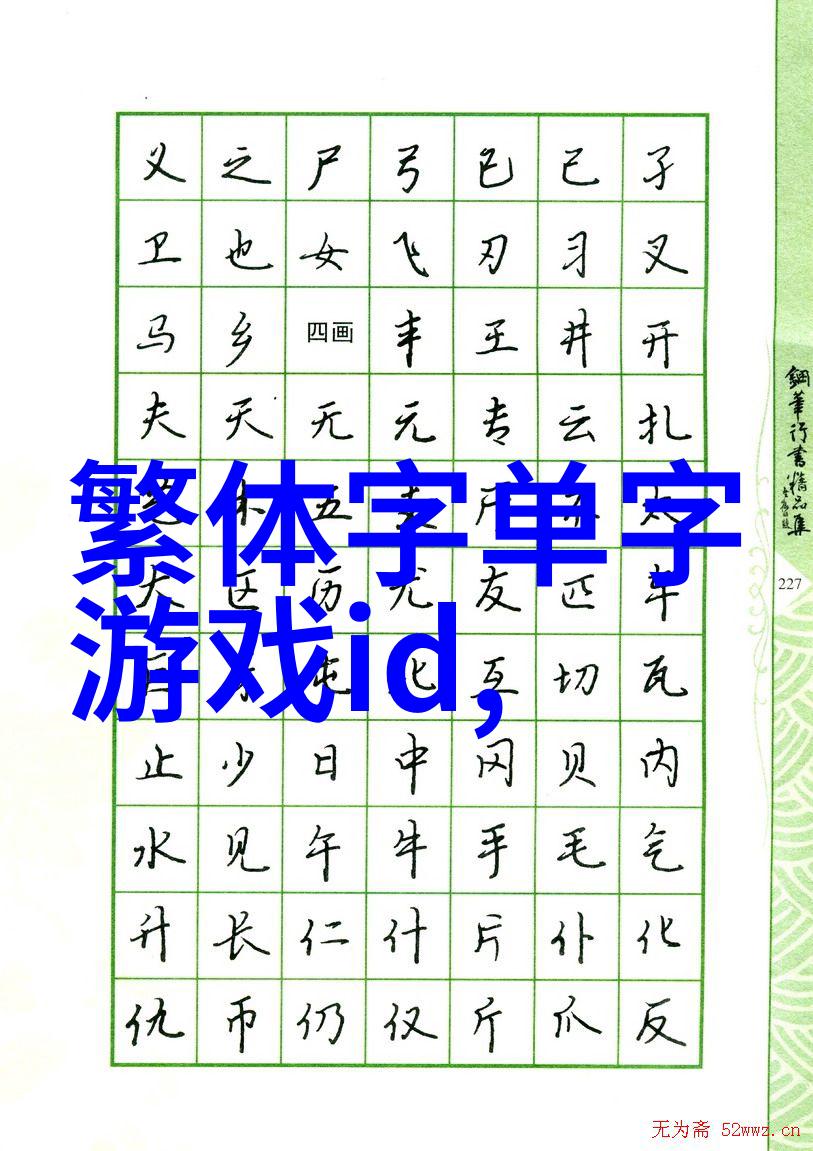 义 之 尸 弓 已 己 子
卫 也 女 飞 刃 习 叉
马 乡 四画 丰 王 井 开
夫 天 无 元 专 云 扎
繁体字单字
游戏id,
五
区 历 尤 友 匹 车
屯 互 切 瓦
止 少 日 中 冈 贝 内
水 见 午 牛 手 毛 气
升 长 仁 什 片 仆 化
仇 币 仍 仅 斤 爪 反
钢笔行书精品集
227
无为斋 52wwz.cn